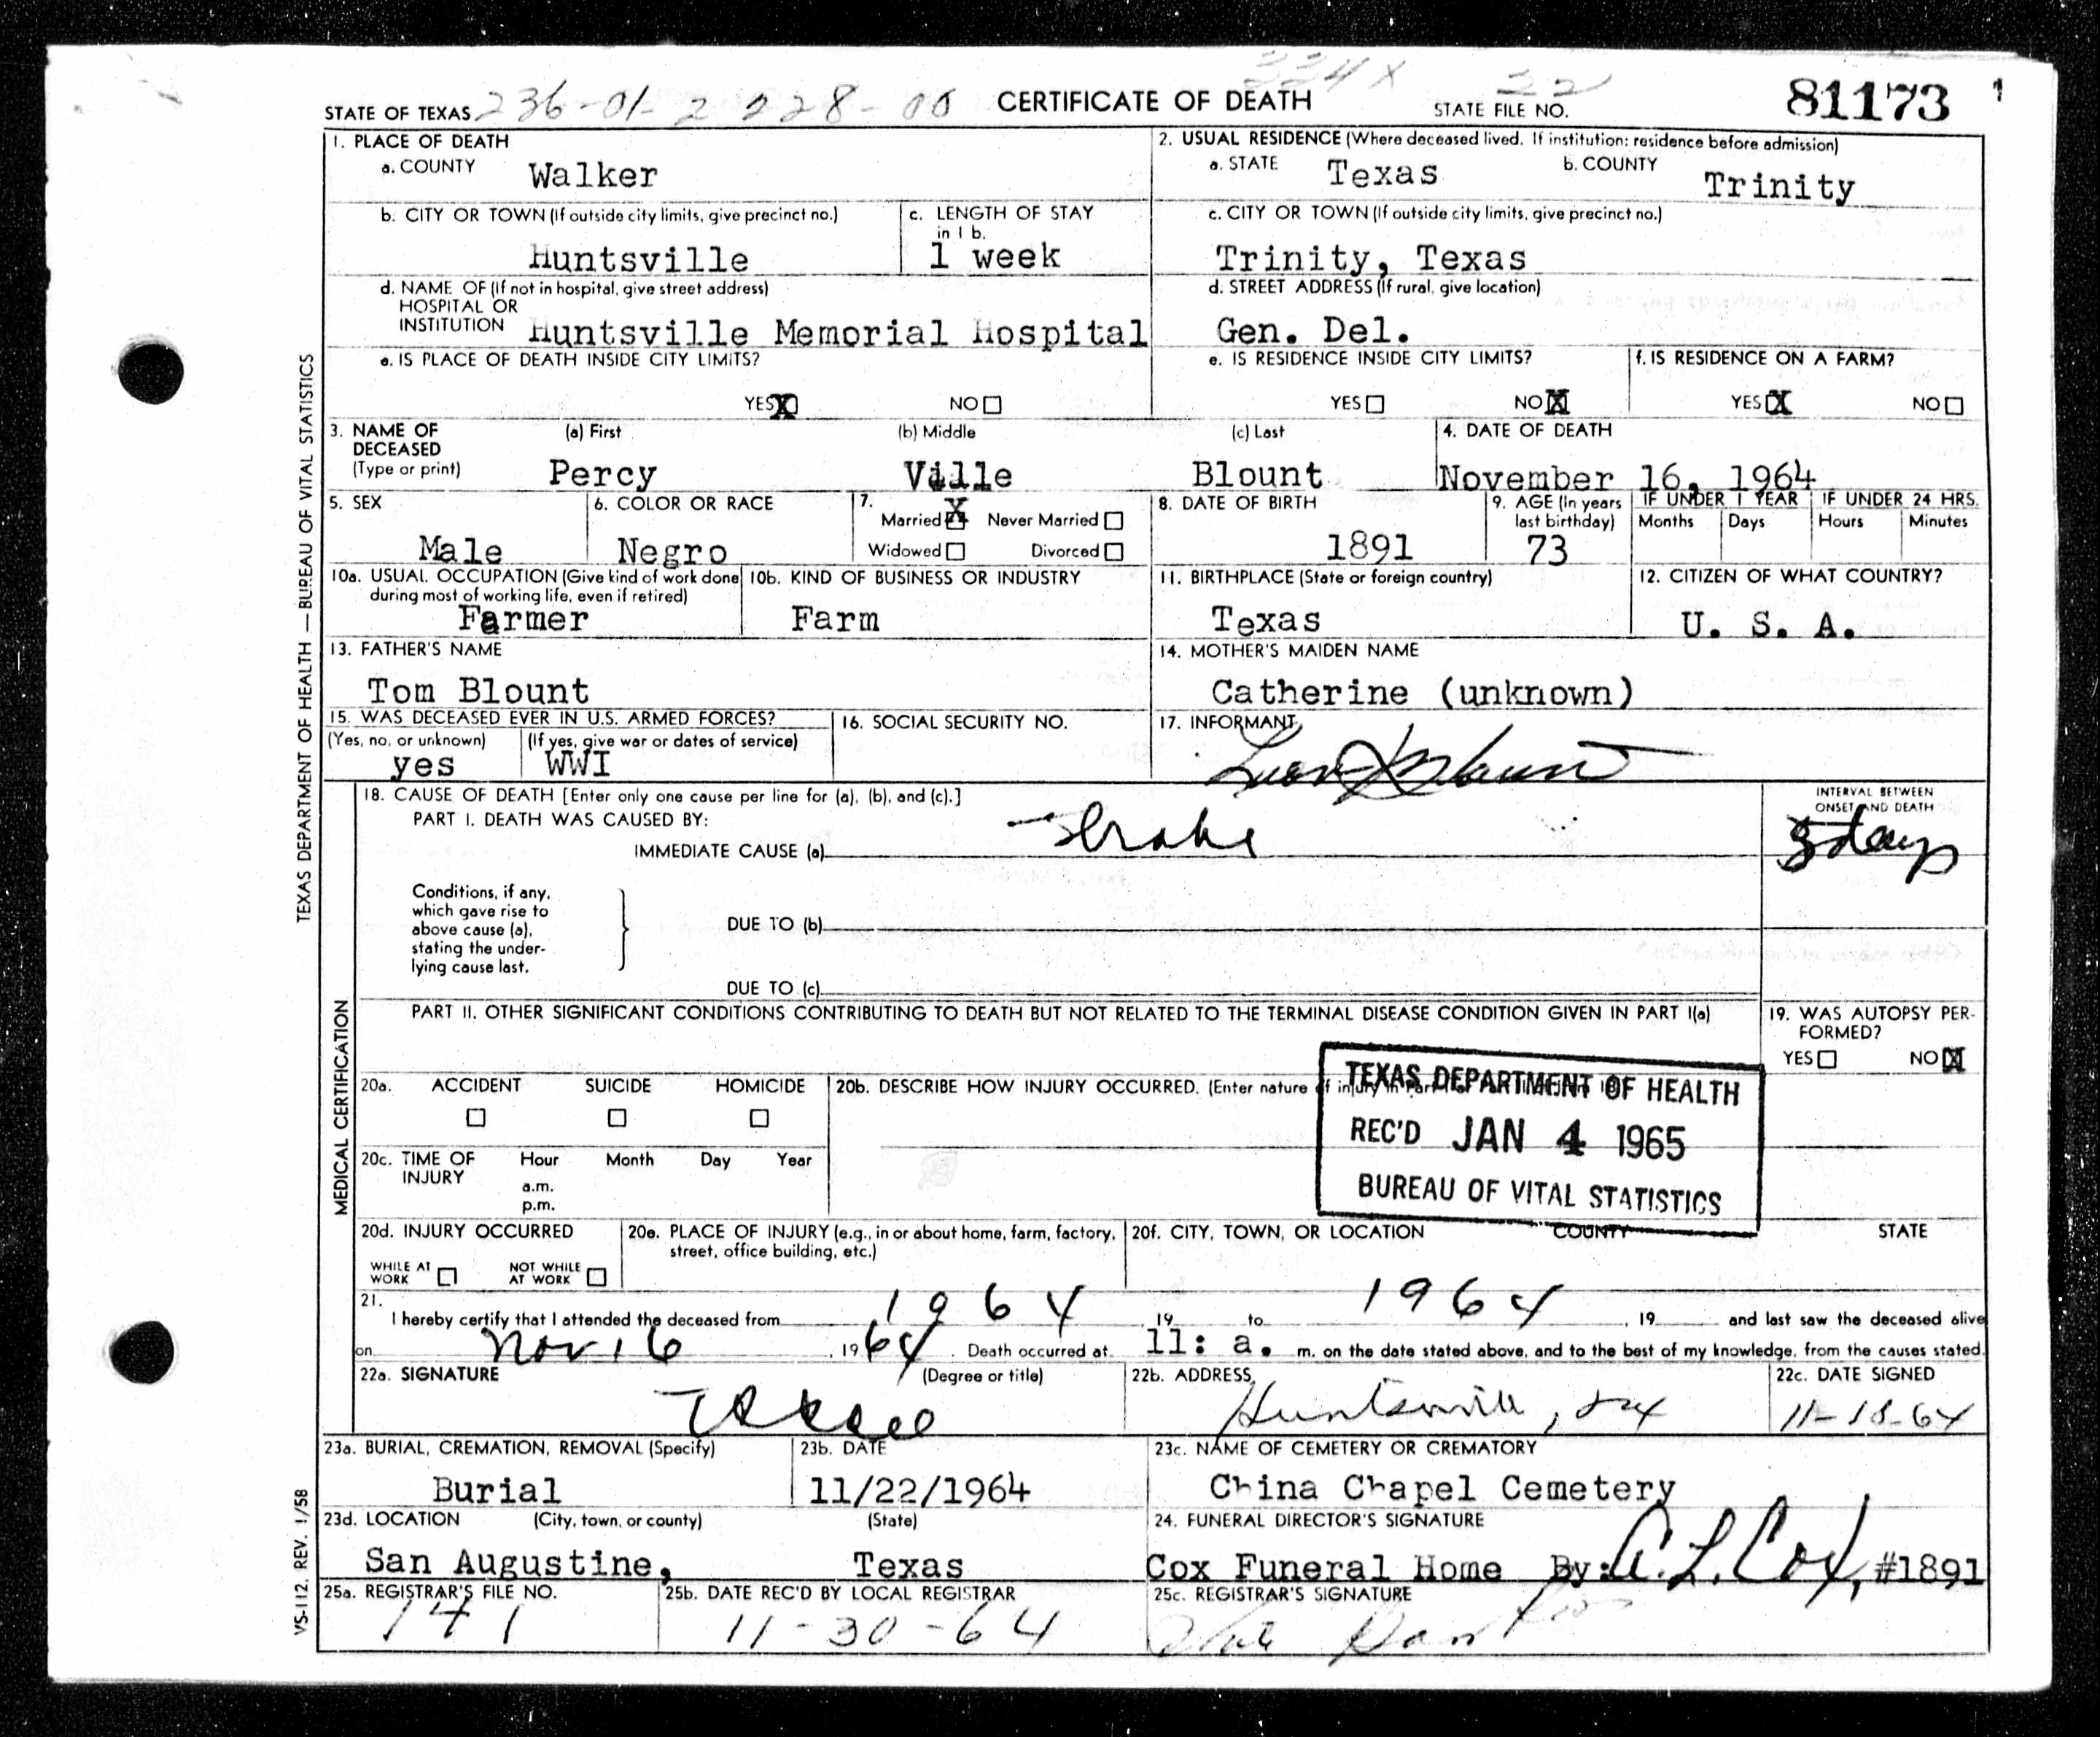 STATE OF TEXAS 236-01-2 228-00 CERTIFICATE OF DEATH STATE FILE NO. 81173 1
1. PLACE OF DEATH
a. COUNTY Walker
2. USUAL RESIDENCE (Where deceased lived. If institution: residence before admission)
a. STATE Texas b. COUNTY Trinity
b. CITY OR TOWN (If outside city limits, give precinct no.)
Huntsville
c. LENGTH OF STAY
in 1 b.
1 week
c. CITY OR TOWN (If outside city limits, give precinct no.)
Trinity, Texas
d. NAME OF (If not in hospital, give street address)
HOSPITAL OR
INSTITUTION Huntsville Memorial Hospital
d. STREET ADDRESS (If rural, give location)
Gen. Del.
e. IS PLACE OF DEATH INSIDE CITY LIMITS?
YES X NO
e. IS RESIDENCE INSIDE CITY LIMITS?
YES NO X
f. IS RESIDENCE ON A FARM?
YES X NO
3. NAME OF
DECEASED
(Type or print)
(a) First (b) Middle (c) Last
Percy Ville Blount
4. DATE OF DEATH
November 16, 1964
5. SEX
Male
6. COLOR OR RACE
Negro
7.
Married X Never Married
Widowed Divorced
8. DATE OF BIRTH
1891
9. AGE (In years
last birthday)
73
IF UNDER 1 YEAR IF UNDER 24 HRS.
Months Days Hours Minutes
10a. USUAL OCCUPATION (Give kind of work done
during most of working life, even if retired)
Farmer
10b. KIND OF BUSINESS OR INDUSTRY
Farm
11. BIRTHPLACE (State or foreign country)
Texas
12. CITIZEN OF WHAT COUNTRY?
U. S. A.
13. FATHER'S NAME
Tom Blount
14. MOTHER'S MAIDEN NAME
Catherine (unknown)
15. WAS DECEASED EVER IN U.S. ARMED FORCES?
(Yes, no, or unknown) (If yes, give war or dates of service)
yes WWI
16. SOCIAL SECURITY NO.
17. INFORMANT
Blount
18. CAUSE OF DEATH [Enter only one cause per line for (a), (b), and (c).]
PART I. DEATH WAS CAUSED BY:
IMMEDIATE CAUSE (a) Stroke
INTERVAL BETWEEN
ONSET AND DEATH
3 days
Conditions, if any,
which gave rise to
above cause (a),
stating the under-
lying cause last.
DUE TO (b)
DUE TO (c)
PART II. OTHER SIGNIFICANT CONDITIONS CONTRIBUTING TO DEATH BUT NOT RELATED TO THE TERMINAL DISEASE CONDITION GIVEN IN PART I(a)
19. WAS AUTOPSY PER-
FORMED?
YES NO X
20a. ACCIDENT SUICIDE HOMICIDE
20b. DESCRIBE HOW INJURY OCCURRED. (Enter nature of injury in Part
TEXAS DEPARTMENT OF HEALTH
REC'D JAN 4 1965
BUREAU OF VITAL STATISTICS
20c. TIME OF
INJURY
Hour Month Day Year
a.m.
p.m.
20d. INJURY OCCURRED
WHILE AT
WORK
NOT WHILE
AT WORK
20e. PLACE OF INJURY (e.g., in or about home, farm, factory,
street, office building, etc.)
20f. CITY, TOWN, OR LOCATION COUNTY STATE
21.
I hereby certify that I attended the deceased from 1964, 19 to 1964, 19 and last saw the deceased alive
on Nov 16, 1964. Death occurred at 11: a. m. on the date stated above, and to the best of my knowledge, from the causes stated.
22a. SIGNATURE (Degree or title)
22b. ADDRESS
Huntsville, Tex
22c. DATE SIGNED
11-18-64
23a. BURIAL, CREMATION, REMOVAL (Specify)
Burial
23b. DATE
11/22/1964
23c. NAME OF CEMETERY OR CREMATORY
China Chapel Cemetery
23d. LOCATION (City, town, or county) (State)
San Augustine, Texas
24. FUNERAL DIRECTOR'S SIGNATURE
Cox Funeral Home By: A. L. Cox, #1891
25a. REGISTRAR'S FILE NO.
141
25b. DATE REC'D BY LOCAL REGISTRAR
11-30-64
25c. REGISTRAR'S SIGNATURE
TEXAS DEPARTMENT OF HEALTH — BUREAU OF VITAL STATISTICS
MEDICAL CERTIFICATION
VS-112, REV. 1/58